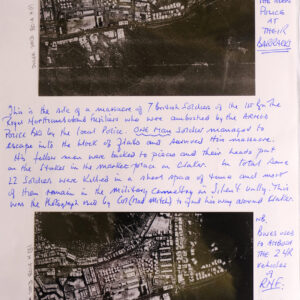 POLICE
AT
THEIR
BARRACKS
This is the site of a massacre of 7 British Soldiers of the 1st Bn The
Royal Northumberland Fusiliers who were ambushed by the Armed
Police by the local Police. ONE man soldier managed to
escape into the block of flats and survived this massacre.
His fellow men were hacked to pieces and their heads put
on the stakes in the market place in Crater. In total some
22 Soldiers were killed in a short space of time and most
of them remain in the military cemetery in Silent Valley. This
was the Photograph used by Col (Mad Mitch) to find his way around Crater.
NB.
Buses used
to Ambush
the 2 4R
vehicles
of
RNF.